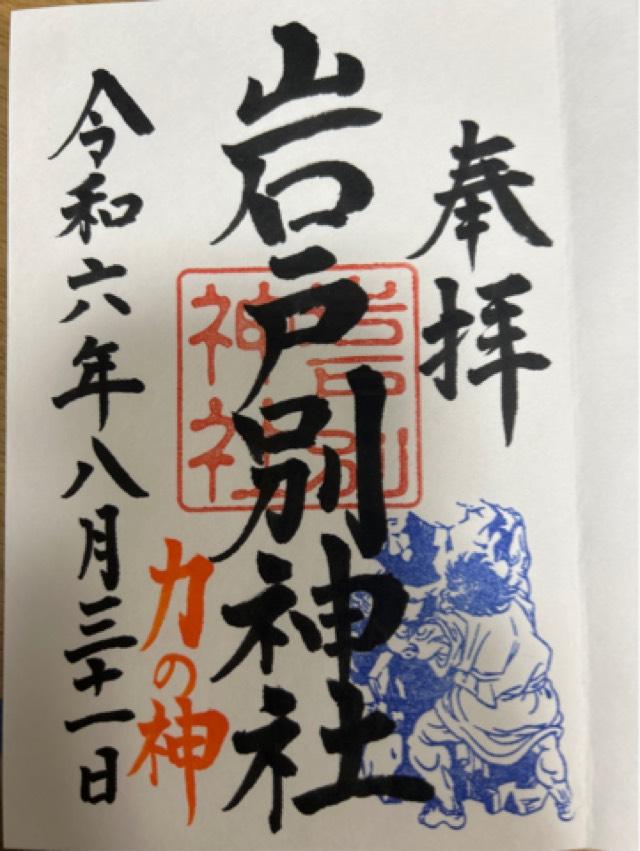 奉拝
岩戸別神社
力の神
令和六年八月三十一日